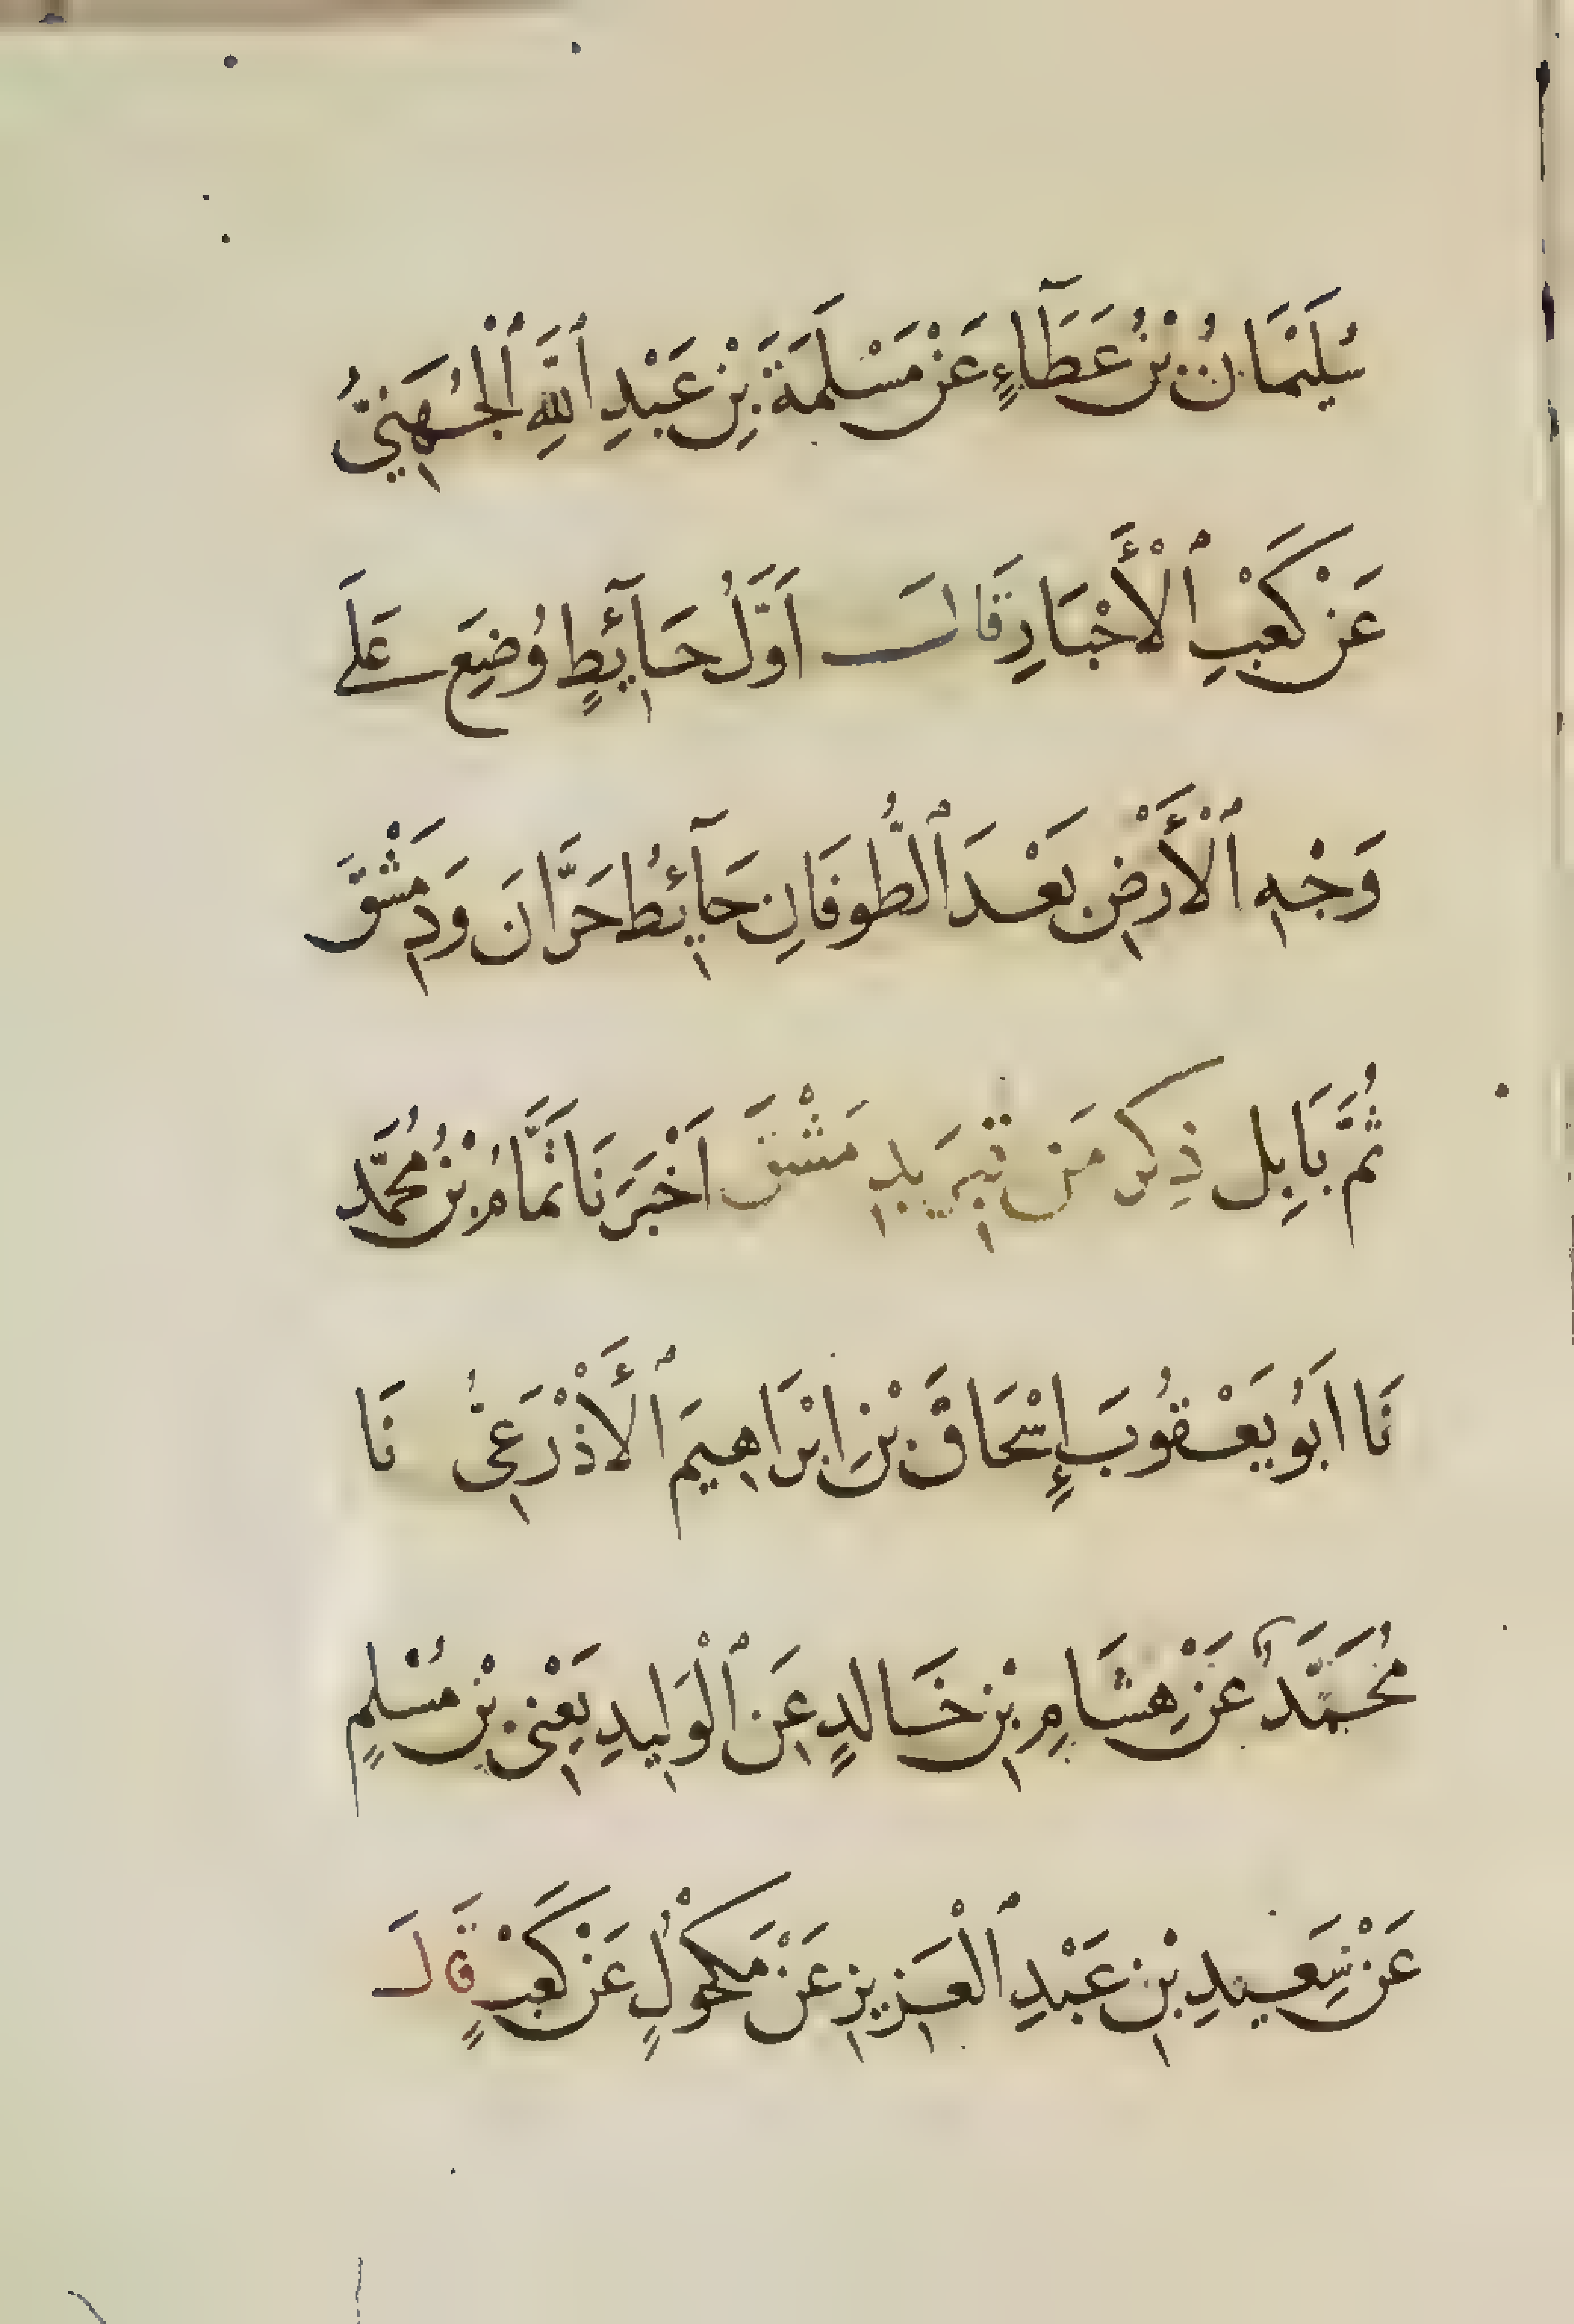 سُلَيْمَانُ بْنُ عَطَآءٍ عَنْ مَسْلَمَةَ بْنِ عَبْدِ ٱللَّهِ ٱلْجُهَنِيُّ
عَنْ كَعْبِ ٱلْأَحْبَارِ قَالَ أَوَّلُ حَآئِطٍ وُضِعَ عَلَى
وَجْهِ ٱلْأَرْضِ بَعْدَ ٱلطُّوفَانِ حَآئِطُ حَرَّانَ وَدِمَشْقَ
ثُمَّ بَابِل ذِكر مَن قبر بدِمَشْقَ اَخْبَرَنَا تَمَّامُ بْنُ مُحَمَّد
نَا اَبُو يَعْقُوبَ إِسْحَاقَ بْنِ اِبْرَاهِيمَ ٱلْأَذْرَعِىُ نَا
مُحَمَّد عَنْ هِشَامِ بْنِ خَالدٍ عَنِ ٱلْوَلِيدِ يَعْنِى بْنِ مُسْلمٍ
عَنْ سَعِيدِ بْنِ عَبْدِ ٱلْعَزِيزِ عَنْ مَكْحُولٍ عَنْ كَعْبٍ قَالَ